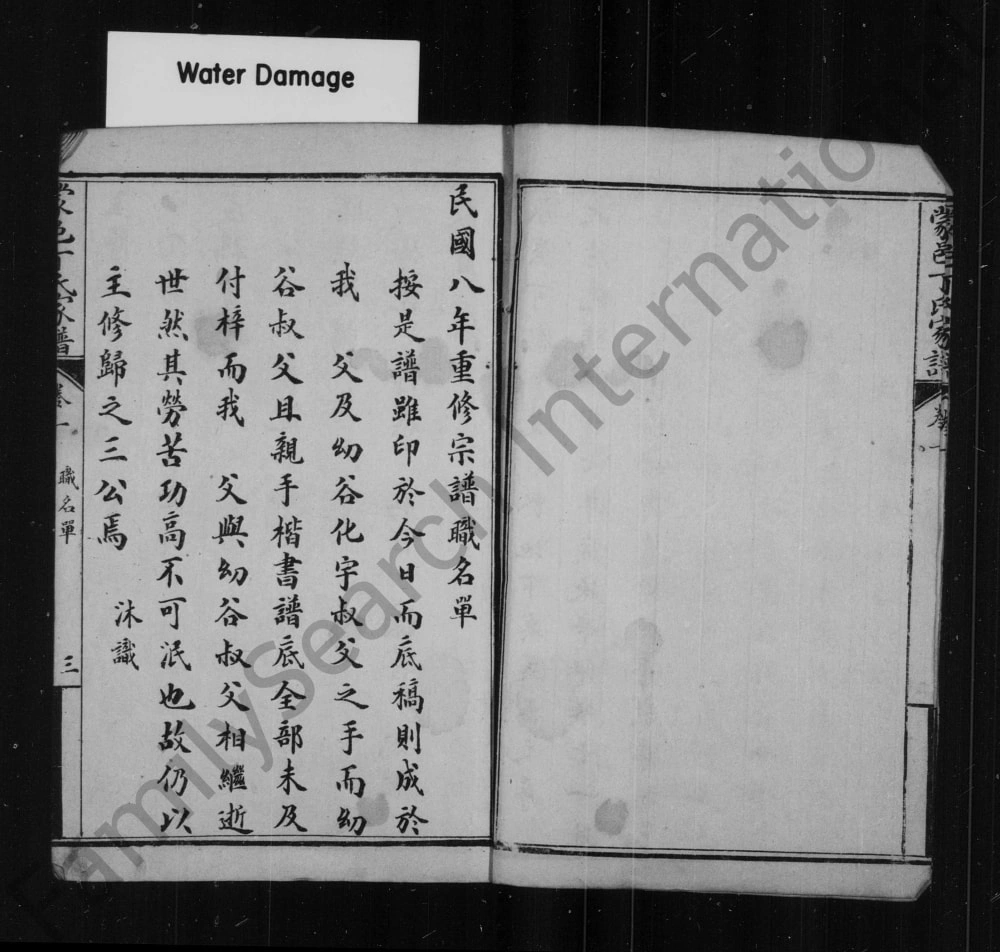 Water Damage
蒙邑丁氏家譜 卷一
民國八年重修宗譜職名單
按是譜雖印於今日而底稿則成於
我 父及幼谷化宇叔父之手而幼
谷叔父且親手楷書譜底全部未及
付梓而我 父與幼谷叔父相繼逝
世然其勞苦功高不可泯也故仍以
主修歸之三公焉 沐識
蒙邑丁氏家譜 卷一 職名單 三
FamilySearch International